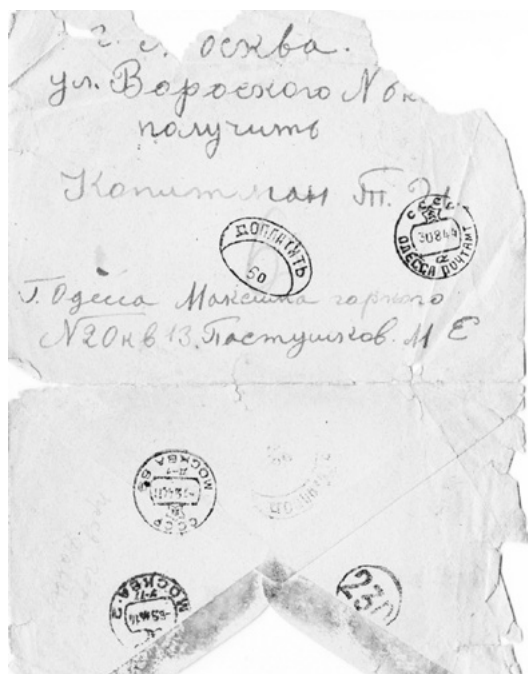 г. осква.
ул. Воровского N 6 кв
получить
Копитман Т.
ДОПЛАТИТЬ
50
СССР
30 8 44
ОДЕССА ПОЧТАМТ
Г. Одесса Максима горького
N20 кв 13. Пастушков. М Е
МОСКВА 69
СССР
МОСКВА-2
230